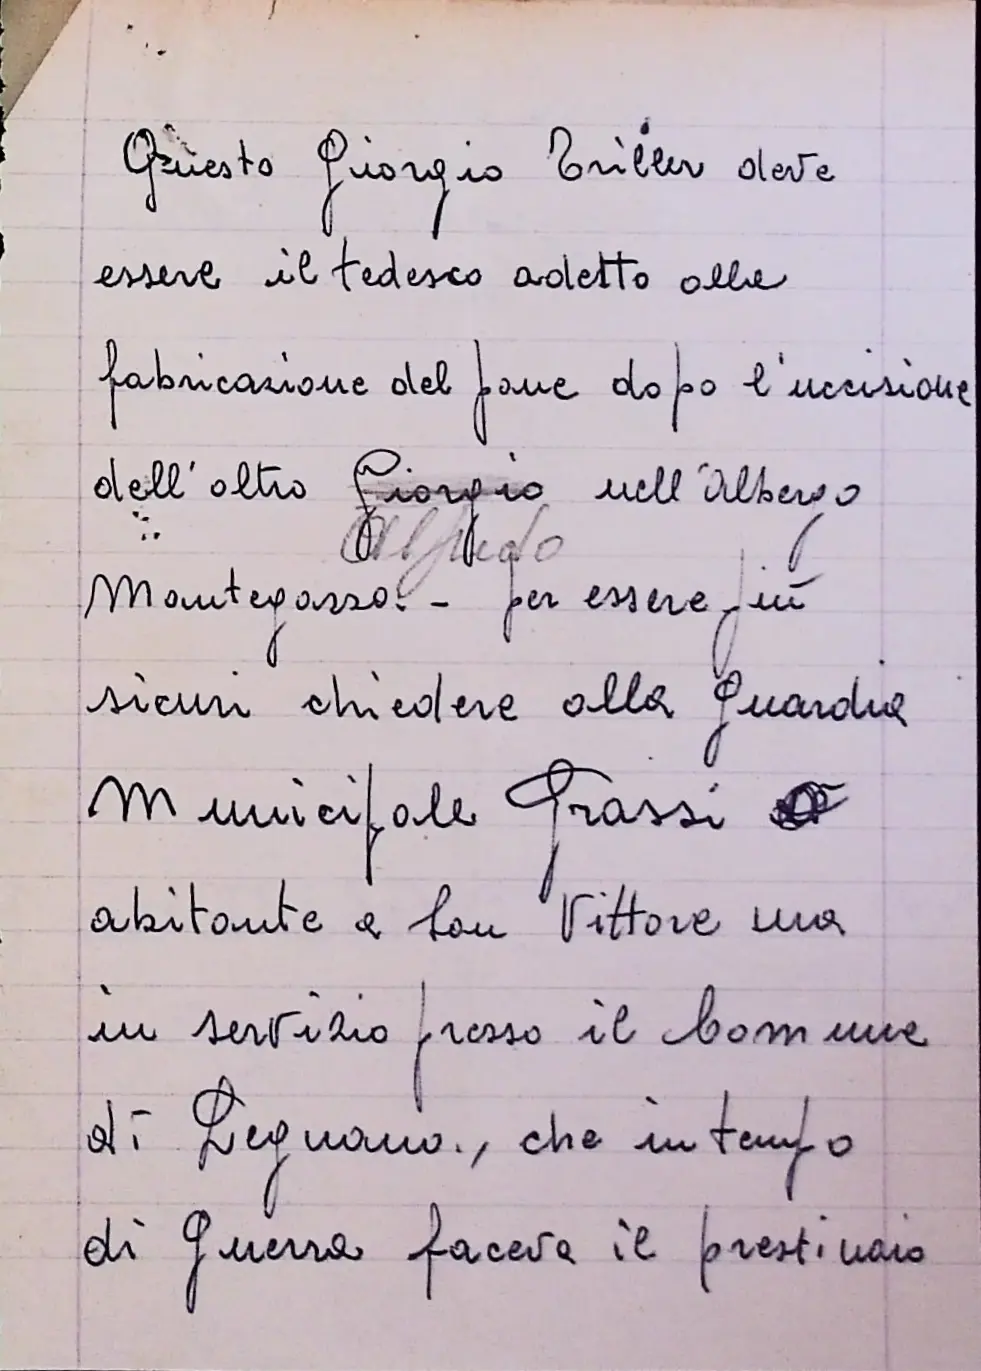 Questo Giorgio Triller deve
essere il tedesco adetto alla
fabricazione del pane dopo l'uccisione
dell'altro Giorgio nell'Albergo
Alfredo
Mantegazza. - per essere più
sicuri chiedere alla Guardia
Municipale Grassi
abitante a San Vittore ma
in servizio presso il Comune
di Legnano., che in tempo
di Guerra faceva il prestinaio